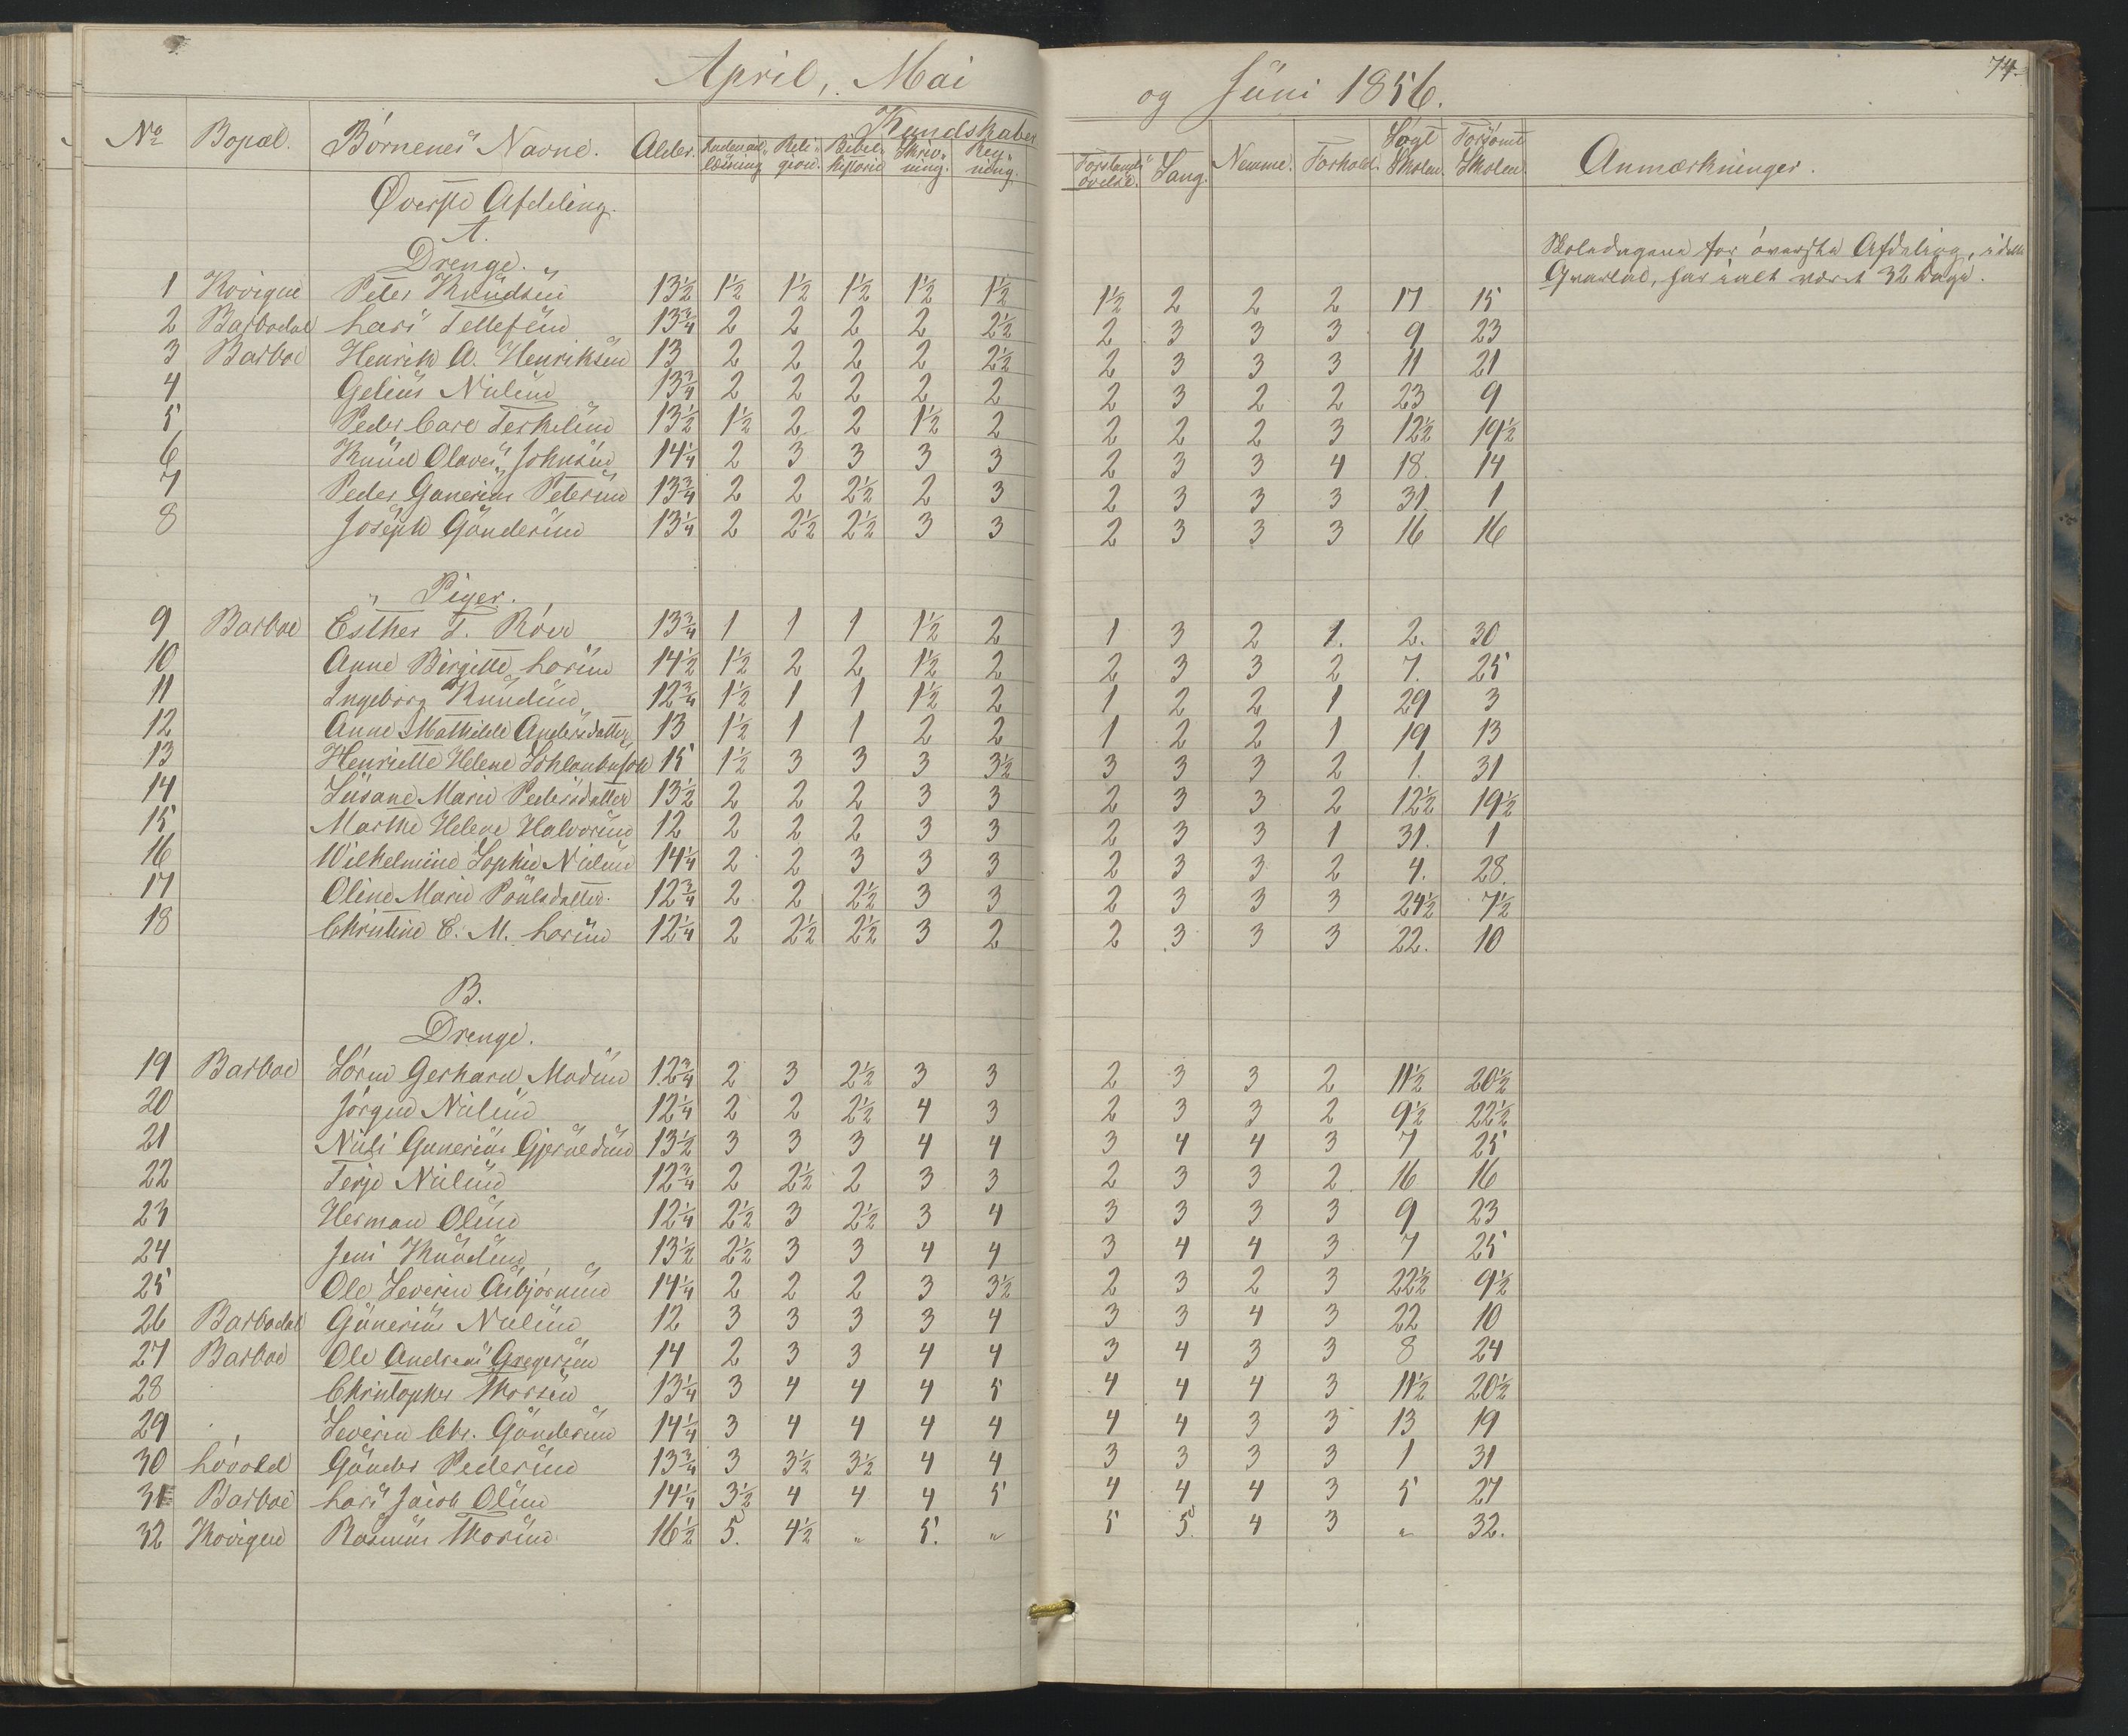 April, Mai og Juni 1856. 74.
No Bopæl. Børnenes Navne. Alder. Kundskaber Nemme. Forhold. Søgt Skolen. Forsømt Skolen. Anmærkninger.
Indenadlæsning Religion. Bibelhistorie Skrivning. Regning. Forstands øvelse. Sang.
Øverste Afdeling.
A.
Drenge.
Skoledagene for øverste Afdeling, i dette
Qvartal, har ialt været 32 Dage.
1 Kovigen Peter Knudsen 13½ 1½ 1½ 1½ 1½ 1½ 1½ 2 2 2 17 15
2 Barbodal Lars Tellefsen 13¾ 2 2 2 2 2½ 2 3 3 3 9 23
3 Barboe Henrik A. Henriksen 13 2 2 2 2 2½ 2 3 3 3 11 21
4 Gelius Nielsen 13¾ 2 2 2 2 2 2 3 2 2 23 9
5 Peder Carl Terkelsen 13½ 1½ 2 2 1½ 2 2 2 2 3 12½ 19½
6 Knud Olaves Johnsen 14¼ 2 3 3 3 3 2 3 3 4 18 14
7 Peder Gunerius Petersen 13¾ 2 2 2½ 2 3 2 3 3 3 31 1
8 Joseph Gundersen 13¼ 2 2½ 2½ 3 3 2 3 3 3 16 16
Piger.
9 Barboe Esther T. Röer 13¾ 1 1 1 1½ 2 1 3 2 1. 2. 30
10 Anne Birgitte Larsen 14½ 1½ 2 2 1½ 2 2 3 3 2 7. 25
11 Ingeborg Knudsen 12¾ 1½ 1 1 1½ 2 1 2 2 1 29 3
12 Anne Mathilde Andersdatter 13 1½ 1 1 2 2 1 2 2 1 19 13
13 Henriette Helene 15 1½ 3 3 3 3½ 3 3 3 2 1. 31
14 Susane Marie Pedersdatter 13½ 2 2 2 3 3 2 3 3 2 12½ 19½
15 Marthe Helene Halvorsen 12 2 2 2 3 3 2 3 3 1 31. 1
16 Wilhelmine Sophie Nielsen 14¼ 2 2 3 3 3 2 3 3 2 4. 28.
17 Oline Marie Poulsdatter. 12¾ 2 2 2½ 3 3 2 3 3 3 24½ 7½
18 Christine E. M. Larsen 12¼ 2 2½ 2½ 3 2 2 3 3 3 22. 10
B.
Drenge.
19 Barboe Søren Gerhard Madsen 12¾ 2 3 2½ 3 3 2 3 3 2 11½ 20½
20 Jørgen Nielsen 12¼ 2 2 2½ 4 3 2 3 3 2 9½ 22½
21 Niels Gunerius Gjeruldsen 13½ 3 3 3 4 4 3 4 4 3 7 25
22 Terje Nielsen 12¾ 2 2½ 2 3 3 2 3 3 2 16 16
23 Herman Olsen 12¼ 2½ 3 2½ 3 4 3 3 3 3 9 23
24 Jens Knudsen 13½ 2½ 3 3 4 4 3 4 4 3 7 25
25 Ole Severin Asbjørnsen 14¼ 2 2 2 3 3½ 2 3 2 3 22½ 9½
26 Barbodal Gunerius Nielsen 12 3 3 3 3 4 3 3 4 3 22 10
27 Barboe Ole Andreas Gregersen 14 2 3 3 4 4 3 4 3 3 8 24
28 Christopher Thorsen 13¼ 3 4 4 4 5 4 4 4 3 11½ 20½
29 Severin Chr. Gundersen 14¼ 3 4 4 4 4 4 4 3 3 13 19
30 Løvold Gunder Pedersen 13¾ 3 3½ 3½ 4 4 3 3 3 3 1 31
31 Barboe Lars Jacob Olsen 14¼ 3½ 4 4 4 5 4 4 4 3 5 27
32 Kovigen Rasmus Thorsen 16½ 5. 4½ „ 5. „ 5 5 4 3 „ 32.